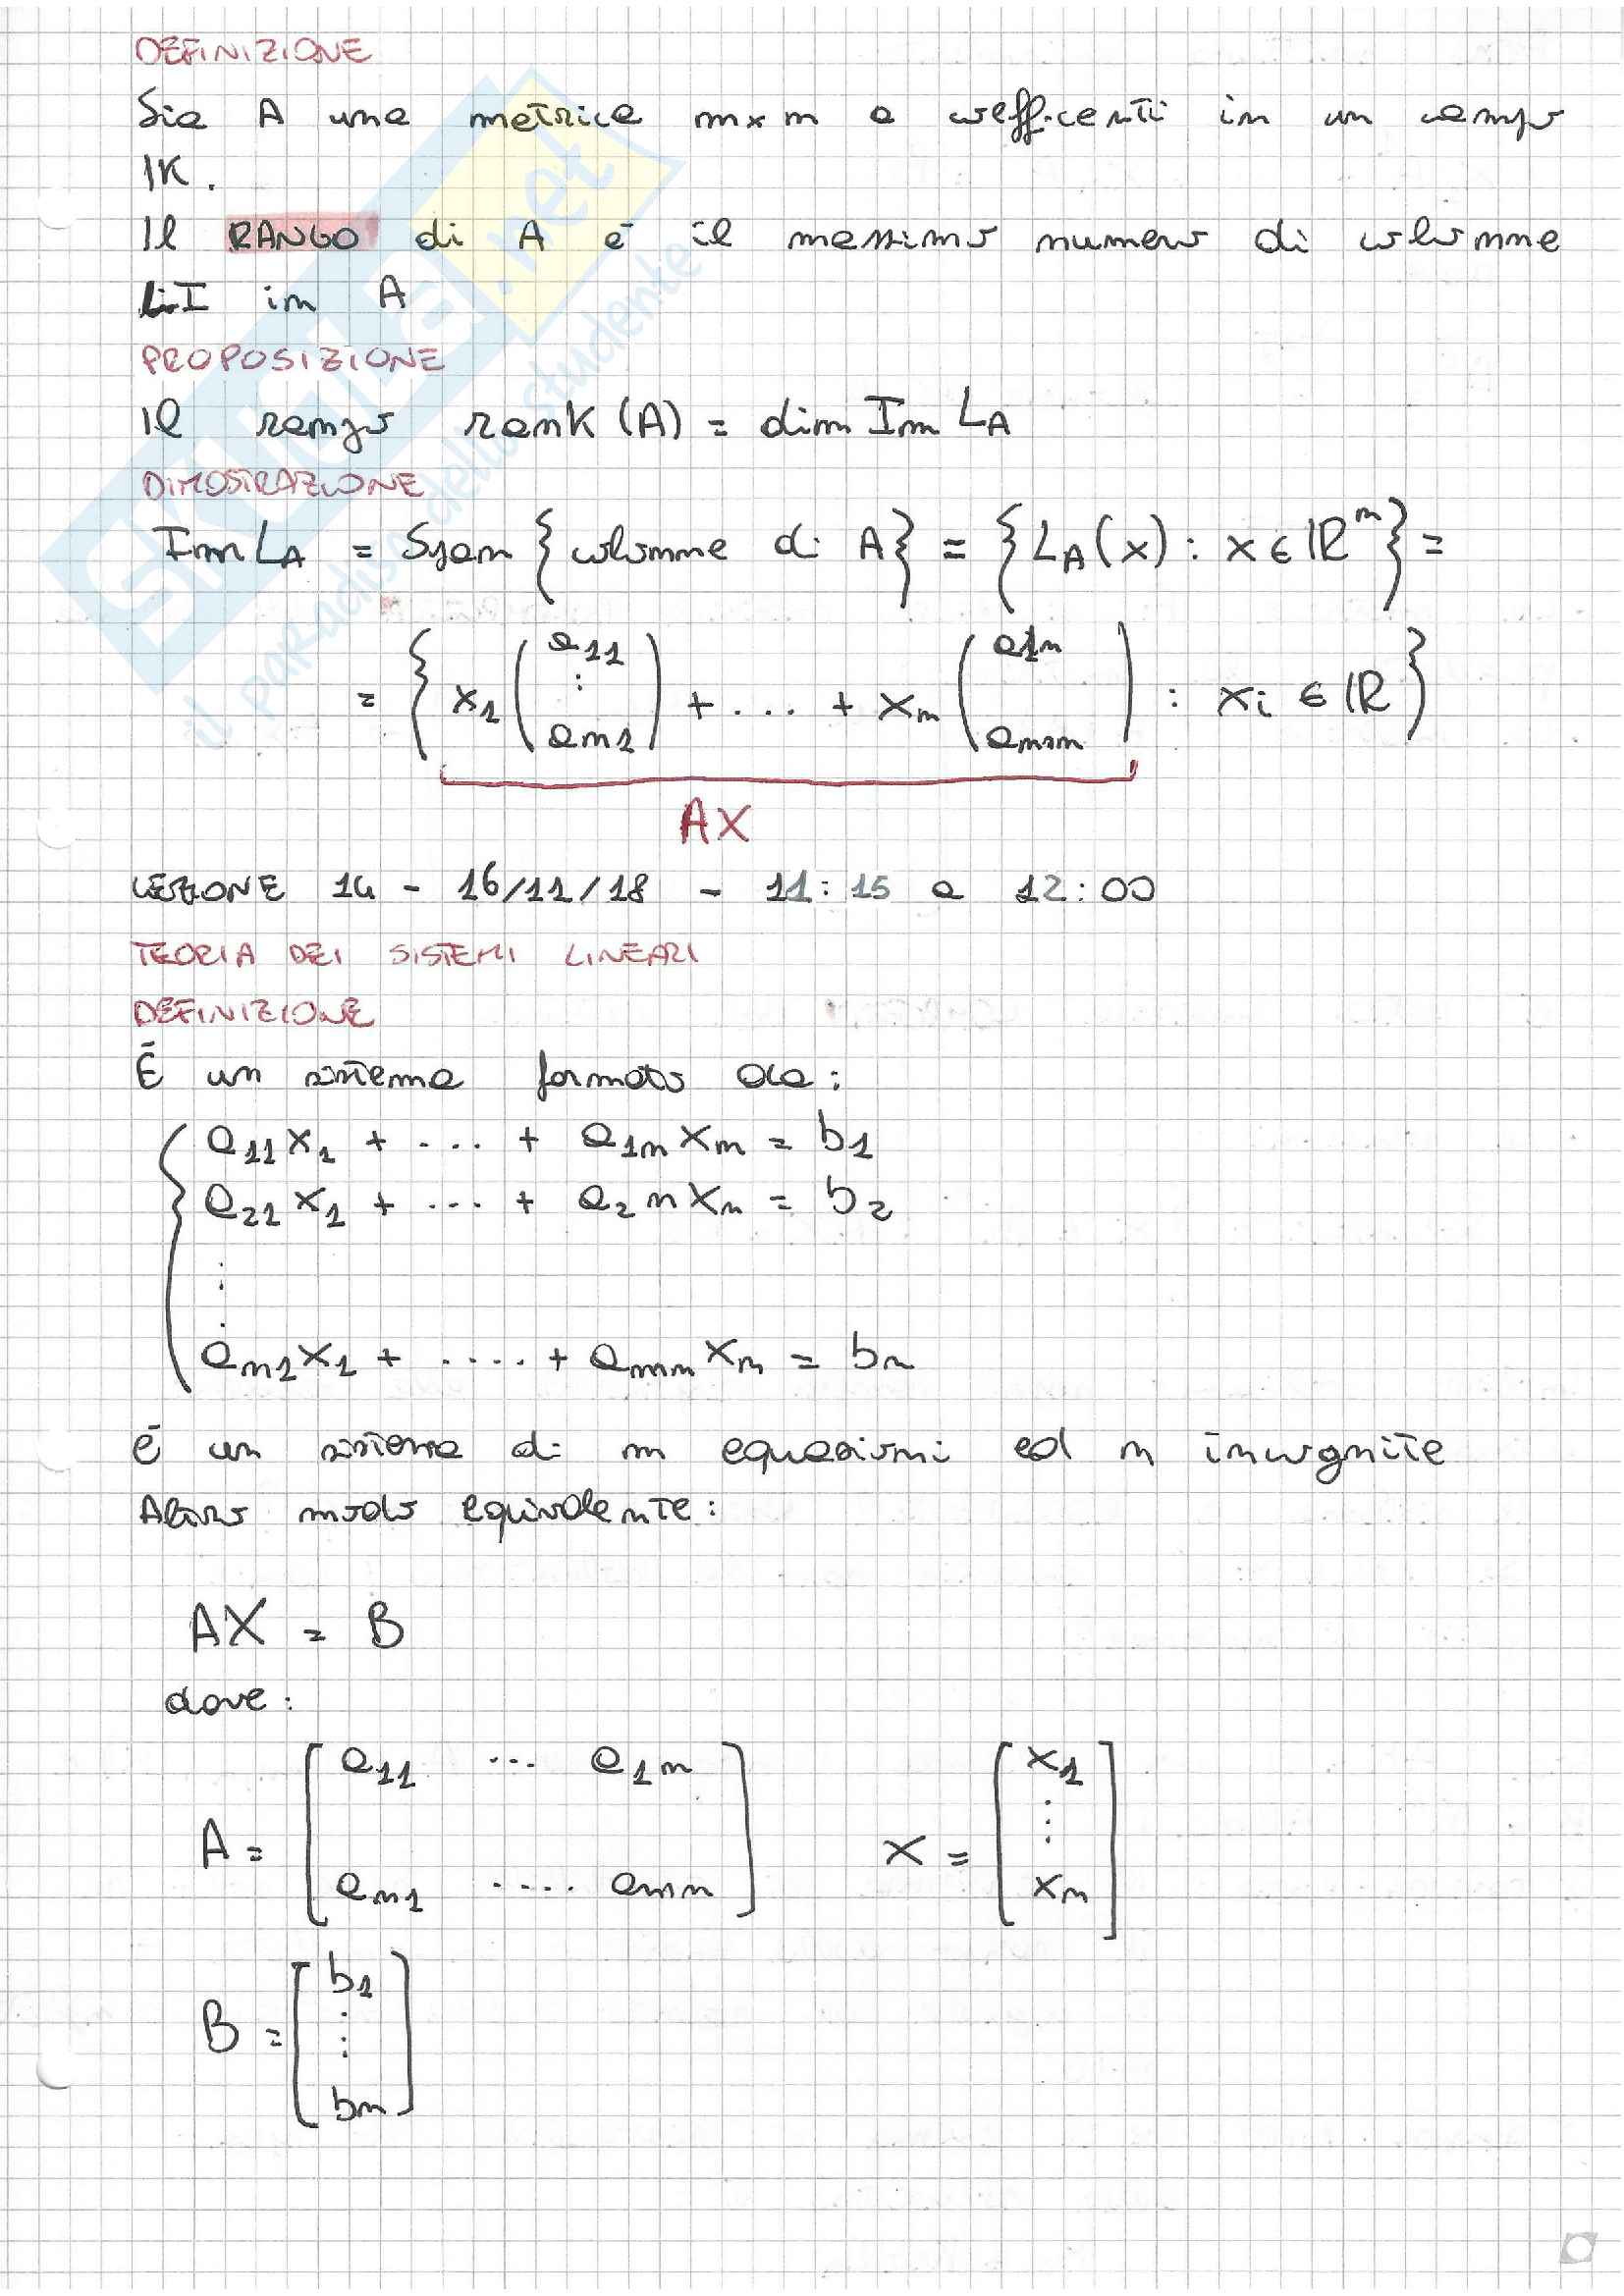 DEFINIZIONE
Sia A una matrice m×n a cofficenti in un campo
IK.
Il RANGO di A é il massimo numero di colonne
LI in A
PROPOSIZIONE
Il rango rank (A) = dim Im L_A
DIMOSTRAZIONE
Im L_A = Span { colonne di A } = { L_A(x) : x ∈ IR^n } =
= { x_1 ( a_11 ⋮ a_m1 ) + ... + x_n ( a_1n a_mn ) : x_i ∈ IR }
AX
LEZIONE 14 - 16/11/18 - 11:15 a 12:00
TEORIA DEI SISTEMI LINEARI
DEFINIZIONE
É un sistema formato da:
a_11 x_1 + ... + a_1n x_n = b_1
a_21 x_1 + ... + a_2n x_n = b_2
⋮
a_m1 x_1 + .... + a_mn x_n = b_n
é un sistema di m equazioni ed n incognite
Altro modo equivalente:
AX = B
dove:
A = [ a_11 ... a_1n
a_m1 .... a_mn ]
X = [ x_1 ⋮ x_n ]
B = [ b_1 ⋮ b_m ]
SKUOLA.net
il paradiso dello studente